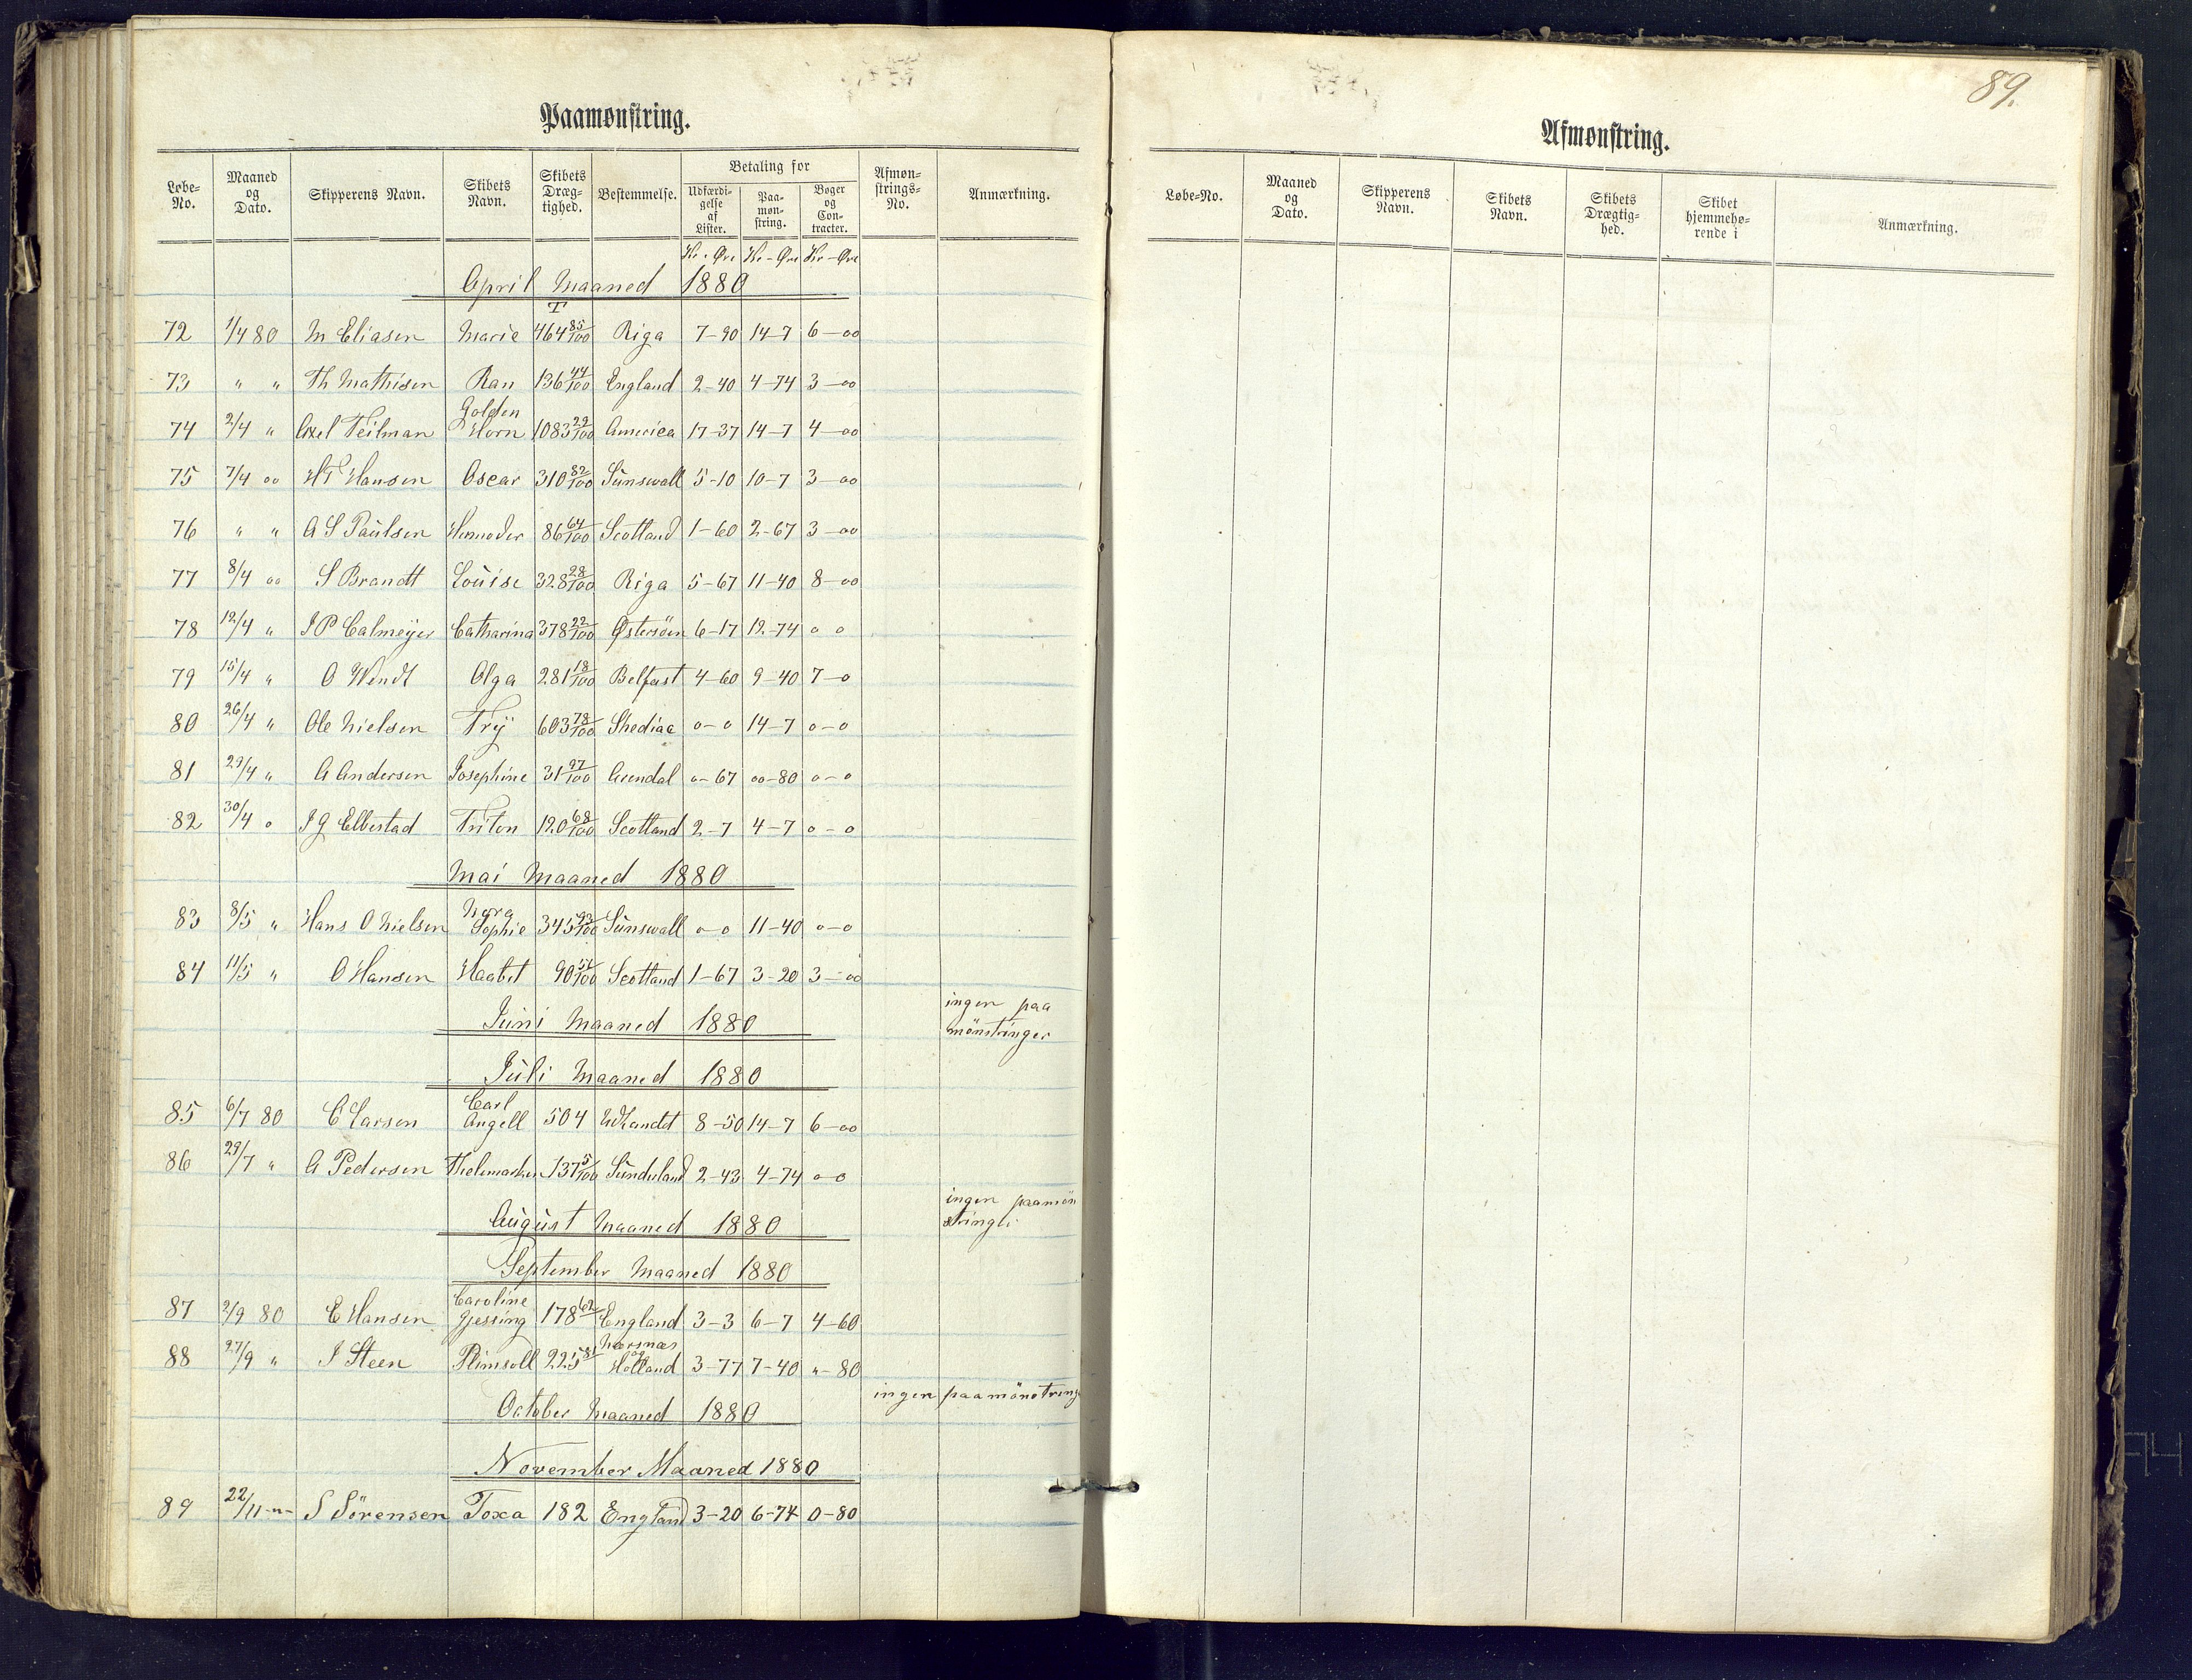 Paamønstring.
Løbe-No. | Maaned og Dato. | Skipperens Navn. | Skibets Navn. | Skibets Dræg-tighed. | Bestemmelse. | Betaling for | Udfærdi-gelse af Lister. | Paa-møn-string. | Bøger og Con-tracter. | Afmøn-strings-No. | Anmærkning.
Kr-Øre Kr-Øre Kr-Øre
April Maaned 1880
T
72 1/4 80 M Eliasen Marie 464 85/100 Riga 7-90 14-7 6-00
73 " " Th Mathisen Ran 136 44/100 England 2-40 4-74 3-00
74 2/4 " Axel Feilman Golden Horn 1083 29/100 America 17-37 14-7 4-00
75 7/4 oo HT Hansen Oscar 310 82/100 Sünswall 5-10 10-7 3-00
76 " " A S Paülsen Hermoder 86 64/100 Scotland 1-60 2-67 3-00
77 8/4 oo S Brandt Louise 328 28/100 Riga 5-67 11-40 8-00
78 12/4 " J P Calmeÿer Catharina 378 22/100 Østersöen 6-17 12-74 o o
79 15/4 " O Wendt Olga 281 18/100 Belfast 4-60 9-40 7-o
80 26/4 " Ole Nielsen Frÿ 603 78/100 Shediac o-o 14-7 o-o
81 29/4 " A Andersen Josephine 31 97/100 Arendal o-67 oo-80 o-o
82 30/4 o J G Ellestad Triton 120 68/100 Scotland 2-7 4-7 o-o
Mai Maaned 1880
83 8/5 " Hans O Nielsen Nora Sophie 345 93/100 Sünswall o-o 11-40 o-o
84 11/5 " O Hansen Haabet 90 51/100 Scotland 1-67 3-20 3-00
Jüni Maaned 1880 ingen paa
mönstringer
Jüli Maaned 1880
85 6/7 80 C Larsen Carl Angell 504 Udlandet 8-50 14-7 6-00
86 29/7 " A Pedersen Thelemarken 137 5/100 Sünderland 2-43 4-74 o-o
August Maaned 1880 ingen paamön
stringer
September Maaned 1880
87 2/9 80 E Hansen Caroline Gjessing 178 62 England 3-3 6-7 4-60
88 27/9 " J Steen Plimsoll 225 81 Holland 3-77 7-40 "-80
October Maaned 1880 ingen paamönstring
November Maaned 1880
89 22/11 -"- S Sörensen Toxa 182 England 3-20 6-74 0-80
89.
Afmønstring.
Løbe-No. | Maaned og Dato. | Skipperens Navn. | Skibets Navn. | Skibets Drægtig-hed. | Skibet hjemmehø-rende i | Anmærkning.